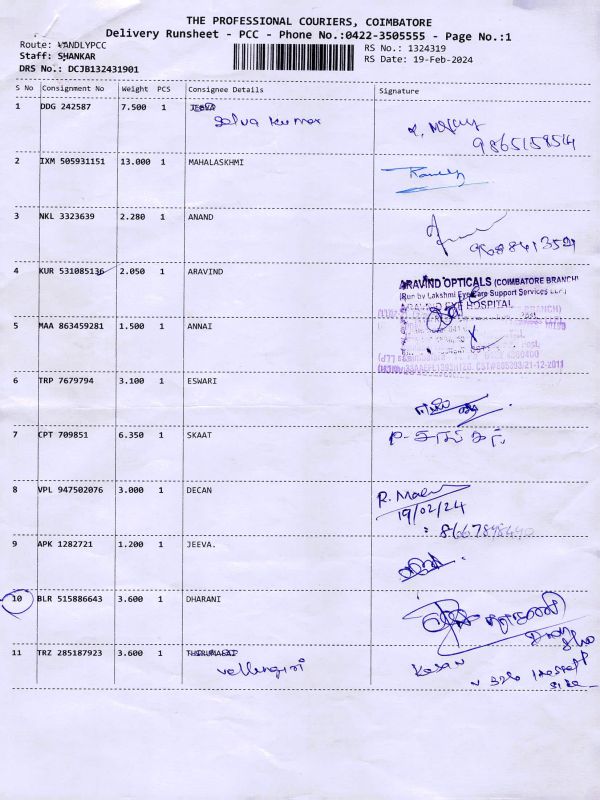 THE PROFESSIONAL COURIERS, COIMBATORE
Delivery Runsheet - PCC - Phone No.:0422-3505555 - Page No.:1
Route: VANDLYPCC
RS No.: 1324319
Staff: SHANKAR
RS Date: 19-Feb-2024
DRS No.: DCJB132431901
S No Consignment No Weight PCS Consignee Details Signature
1 DDG 242587 7.500 1
Selva Kumar
9865159514
2 IXM 505931151 13.000 1 MAHALASKHMI
3 NKL 3323639 2.280 1 ANAND
4 KUR 531085136 2.050 1 ARAVIND
ARAVIND OPTICALS (COIMBATORE BRANCH)
(Run by Lakshmi Eye Care Support Services LLP)
ARAVIND EYE HOSPITAL
5 MAA 863459281 1.500 1 ANNAI
6 TRP 7679794 3.100 1 ESWARI
7 CPT 709851 6.350 1 SKAAT
8 VPL 947502076 3.000 1 DECAN
19/02/24
9 APK 1282721 1.200 1 JEEVA.
10 BLR 515886643 3.600 1 DHARANI
11 TRZ 285187923 3.600 1
vellingiri